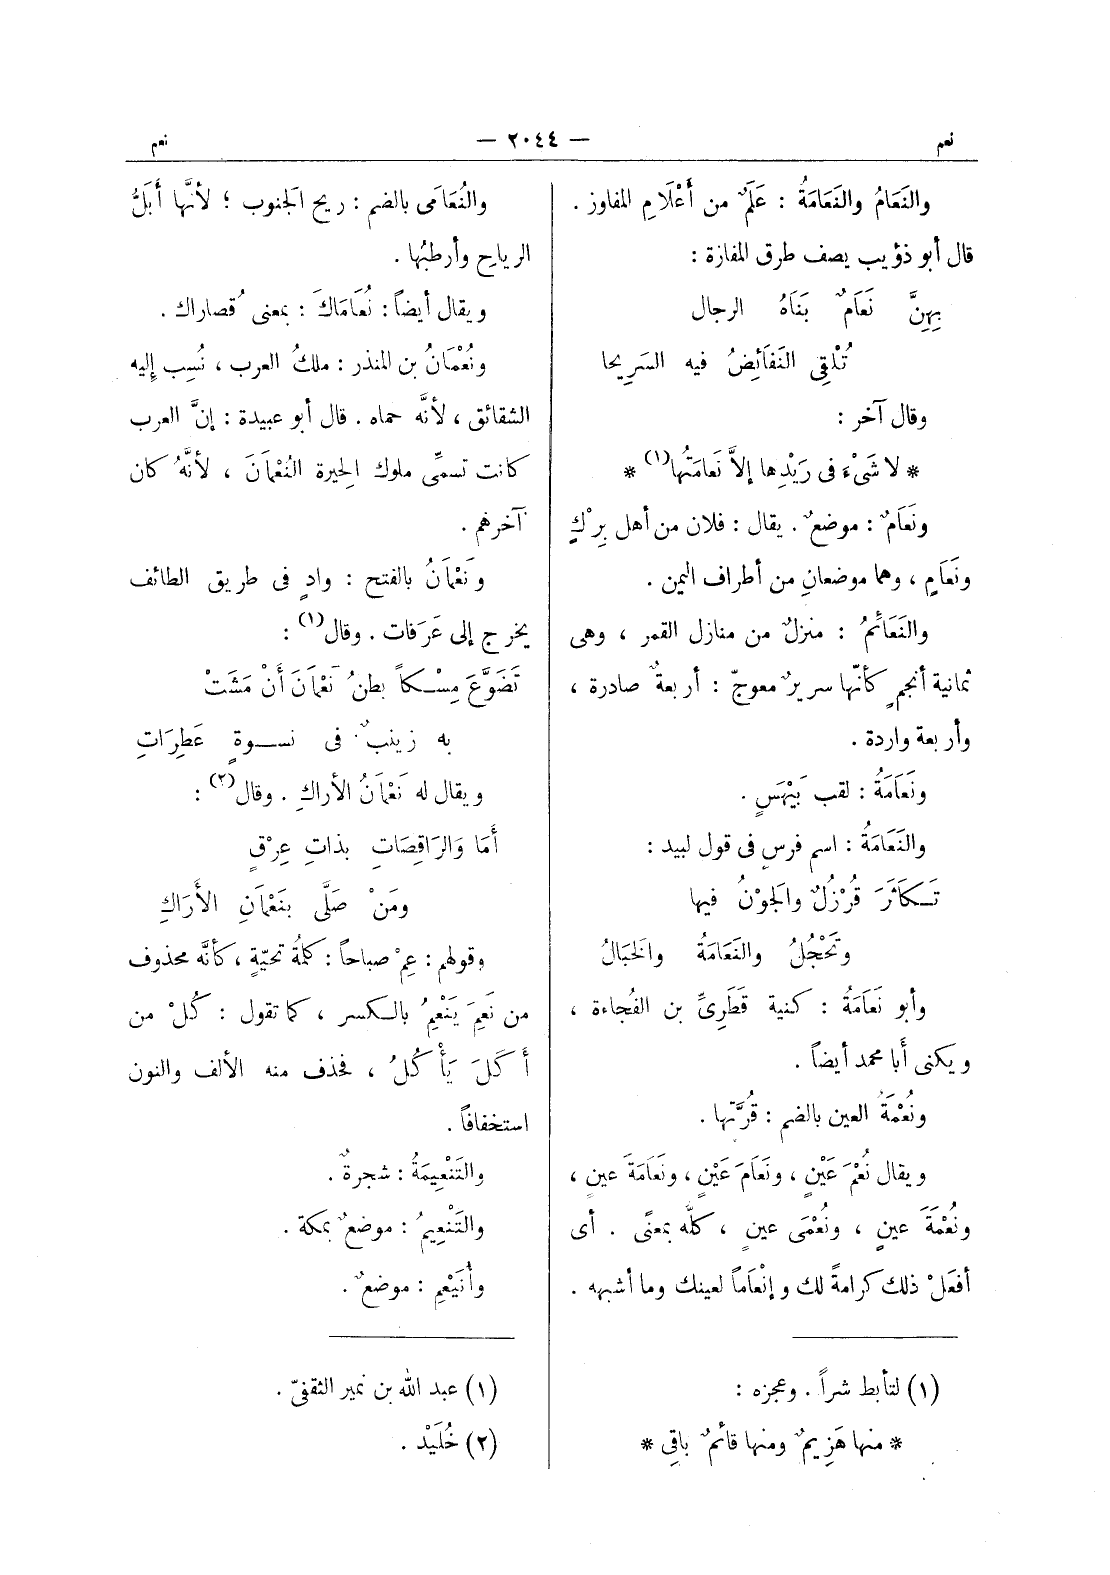 نعم — ٢٠٤٤ — نعم
والنَعَامُ والنَعَامَةُ : عَلَمٌ من أَعْلَامِ المفاوز .
قال أبو ذؤيب يصف طرق المفازة :
بِهِنَّ نَعَامٌ بَنَاهُ الرجال
تُلْقِى النَفَائِضُ فيه السَرِيحا
وقال آخر :
* لا شَىْءَ فى رَيْدِها إلاَّ نَعامَتُها(١) *
ونَعَامٌ : موضعٌ . يقال : فلان من أهل بِرْكٍ
ونَعَامٍ ، وهما موضعانِ من أطراف اليمن .
والنَعَائمُ : منزلٌ من منازل القمر ، وهى
ثمانية أنجمٍ كأنّها سريرٌ معوجّ : أربعةٌ صادرة ،
وأربعة واردة .
ونَعَامَةُ : لقب بَيْهَسٍ .
والنَعَامَةُ : اسم فرسٍ فى قول لبيد :
تَكَاثَرَ قُرْزُلٌ والجَوْنُ فيها
وتَحْجُلُ والنَعَامَةُ والخَبَالُ
وأبو نَعَامَةُ : كنية قَطَرِىِّ بن الفُجاءة ،
ويكنى أَبا محمد أيضاً .
ونُعْمَةُ العين بالضم : قُرَّتها .
ويقال نُعْمَ عَيْنٍ ، ونَعَامَ عَيْنٍ ، ونَعَامَةَ عينٍ ،
ونُعْمَةَ عينٍ ، ونُعْمَى عينٍ ، كلّه بمعنًى . أى
أفعَلْ ذلك كرامةً لك وإنْعَاماً لعينك وما أشبهه .
(١) لتأبط شراً . وعجزه :
* منها هَزِيمٌ ومنها قائمٌ باقِى *
والنُعَامَى بالضم : ريح الجنوب ؛ لأنَّها أَبَلُّ
الرياحِ وأرطبُها .
ويقال أيضاً : نُعَامَاكَ : بمعنى قُصاراك .
ونُعْمَانُ بن المنذر : ملكُ العرب ، نُسِب إليه
الشقائق ، لأنَّه حماه . قال أبو عبيدة : إنَّ العرب
كانت تسمِّى ملوك الحِيرة النُعْمَانَ ، لأنَّهُ كان
آخرهم .
ونَعْمَانُ بالفتح : وادٍ فى طريق الطائف
يخرج إلى عَرَفات . وقال(١) :
تَضَوَّعَ مِسْكاً بطنُ نَعْمَانَ أَنْ مَشَتْ
به زينبٌ فى نسوةٍ عَطِرَاتِ
ويقال له نَعْمَانُ الأراكِ . وقال(٢) :
أَمَا وَالرَاقِصَاتِ بذاتِ عِرْقٍ
ومَنْ صَلَّى بنَعْمَانِ الأَرَاكِ
وقولهم : عِمْ صباحاً : كلمةُ تحيّةٍ ، كأنَّه محذوف
من نَعِمَ يَنْعِمُ بالكسر ، كما تقول : كُلْ من
أَكَلَ يَأْكُلُ ، فحذف منه الألف والنون
استخفافاً .
والتَنْعِيمَةُ : شجرةٌ .
والتَنْعِيمُ : موضعٌ بمكة .
وأُنَيْعِم : موضعٌ .
(١) عبد الله بن نمير الثقفىّ .
(٢) خُلَيْد .